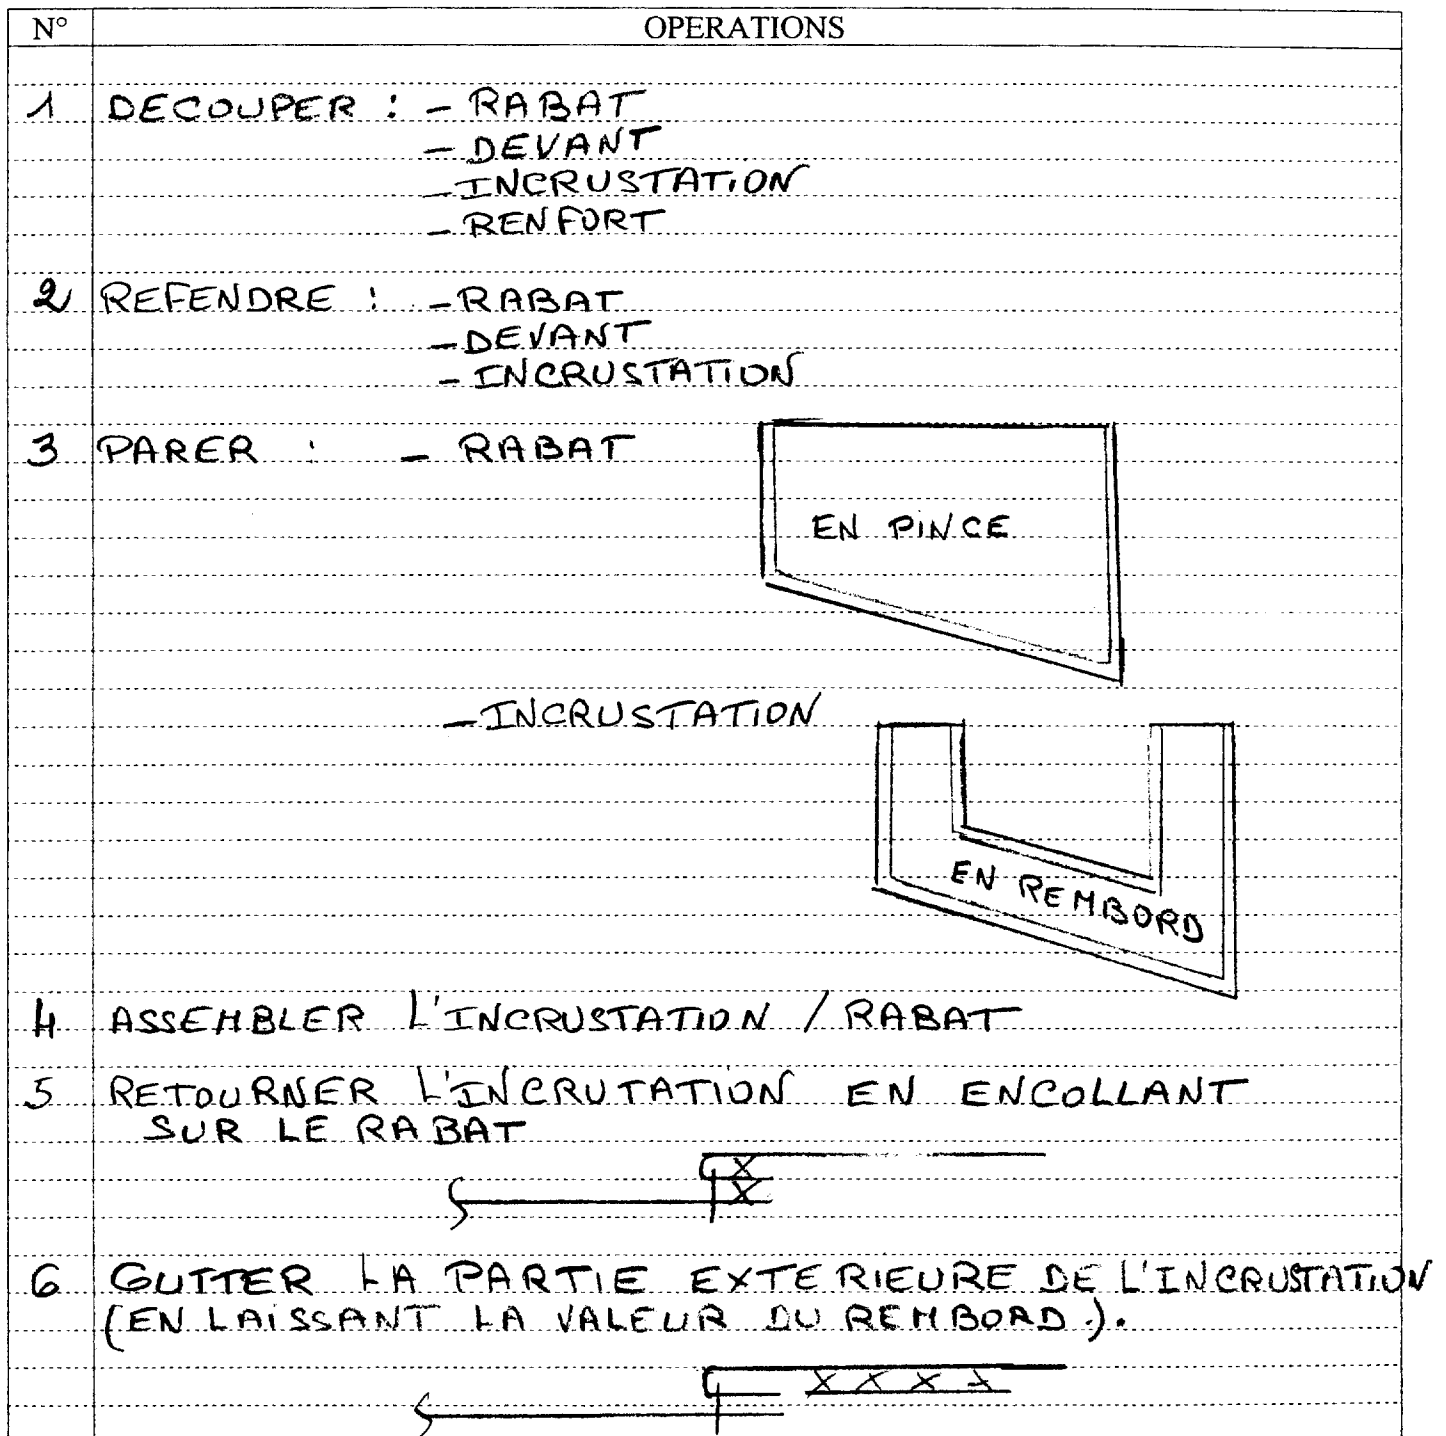 N° OPERATIONS
1 DECOUPER : - RABAT
- DEVANT
- INCRUSTATION
- RENFORT
2 REFENDRE : - RABAT
- DEVANT
- INCRUSTATION
3 PARER : - RABAT
EN PINCE
- INCRUSTATION
EN REMBORD
4 ASSEMBLER L'INCRUSTATION / RABAT
5 RETOURNER L'INCRUTATION EN ENCOLLANT
SUR LE RABAT
X
X
6 GUTTER LA PARTIE EXTERIEURE DE L'INCRUSTATION
(EN LAISSANT LA VALEUR DU REMBORD.).
X X X X